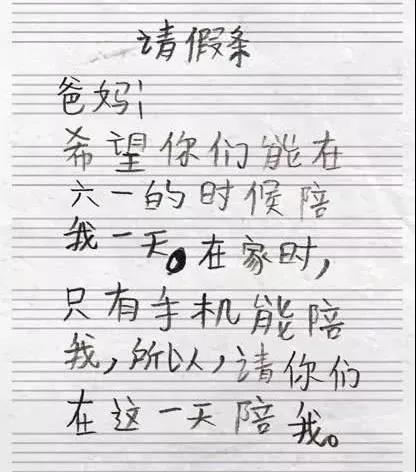 请假条
爸妈：
希望你们能在
六一的时候陪
我一天。在家时，
只有手机能陪
我，所以，请你们
在这一天陪我。